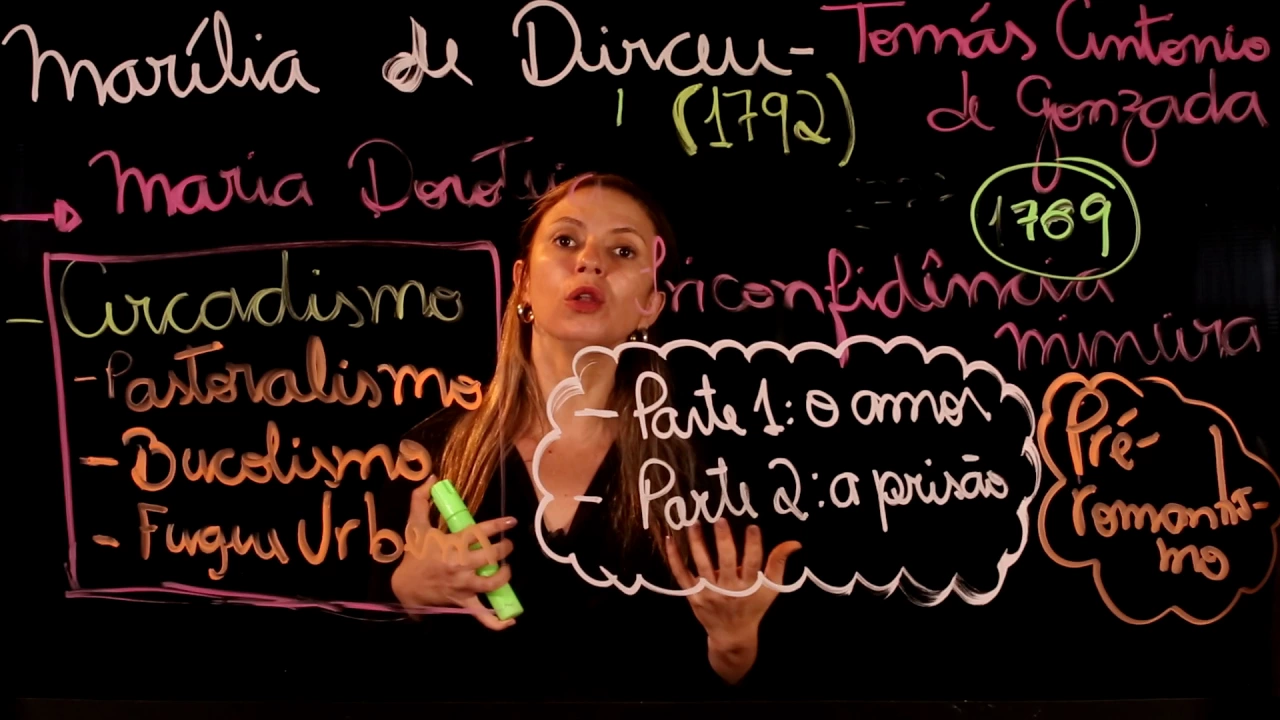 Marília de Dirceu -
Tomás Antonio
de Gonzada
(1792)
Maria Dorot
1789
Arcadismo
- Pastoralismo
- Bucolismo
- Fugere Urbem
Inconfidência
mineira
- Parte 1: o amor
- Parte 2: a prisão
Pré-
romantis-
mo